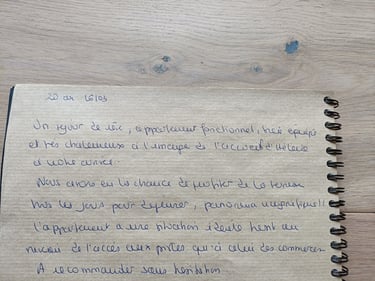 Un séjour de rêve, appartement fonctionnel, très équipé
et très chaleureux à l'image de l'accueil d'Hélène
à notre arrivée.
Nous avons eu la chance de profiter de la terrasse
tous les jours pour déjeuner, panorama magnifique!!
L'appartement a une situation idéale tant au
niveau de l'accès aux pistes qu'à celui des commerces
A recommander sans hésitation